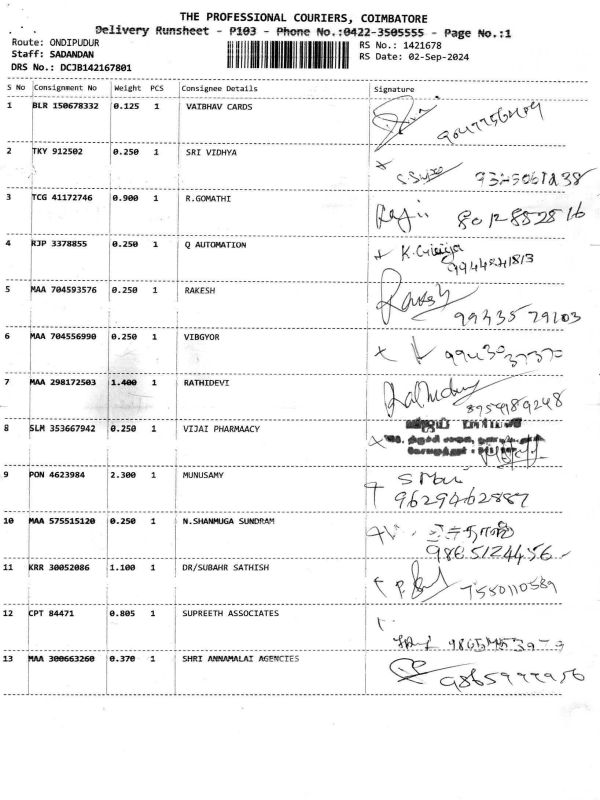 THE PROFESSIONAL COURIERS, COIMBATORE
Delivery Runsheet - P103 - Phone No.:0422-3505555 - Page No.:1
Route: ONDIPUDUR
RS No.: 1421678
Staff: SADANDAN
RS Date: 02-Sep-2024
DRS No.: DCJB142167801
S No Consignment No Weight PCS Consignee Details Signature
1 BLR 150678332 0.125 1 VAIBHAV CARDS
2 TKY 912502 0.250 1 SRI VIDHYA
3 TCG 41172746 0.900 1 R.GOMATHI
8012852816
4 RJP 3378855 0.250 1 Q AUTOMATION K.Girija
9944841813
5 MAA 704593576 0.250 1 RAKESH Rakesh
9943579103
6 MAA 704556990 0.250 1 VIBGYOR
7 MAA 298172503 1.400 1 RATHIDEVI Rathidevi
8754189248
8 SLM 353667942 0.250 1 VIJAI PHARMAACY
9 PON 4623984 2.300 1 MUNUSAMY
9629462887
10 MAA 575515120 0.250 1 N.SHANMUGA SUNDRAM
9865124456
11 KRR 30052086 1.100 1 DR/SUBAHR SATHISH
7550110589
12 CPT 84471 0.805 1 SUPREETH ASSOCIATES
13 MAA 300663260 0.370 1 SHRI ANNAMALAI AGENCIES